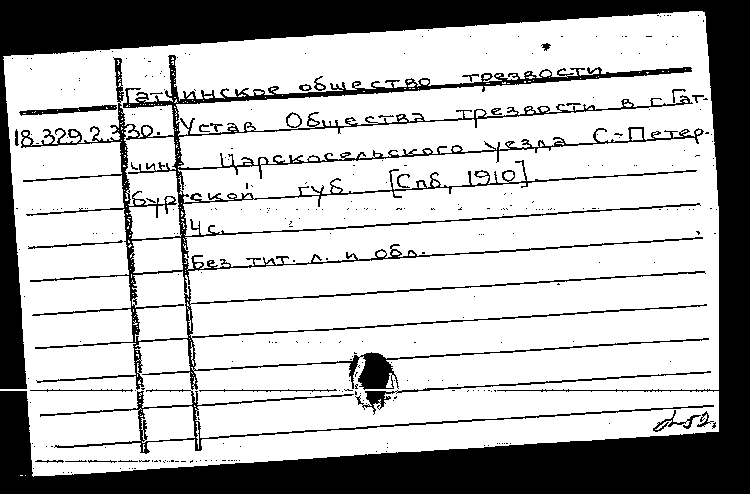 Гатчинское общество трезвости.
18.329.2.330. Устав Общества трезвости в г. Гат-
чине Царскосельского уезда С.-Петер-
бургской губ. [Спб., 1910].
4 с.
Без тит. л. и обл.